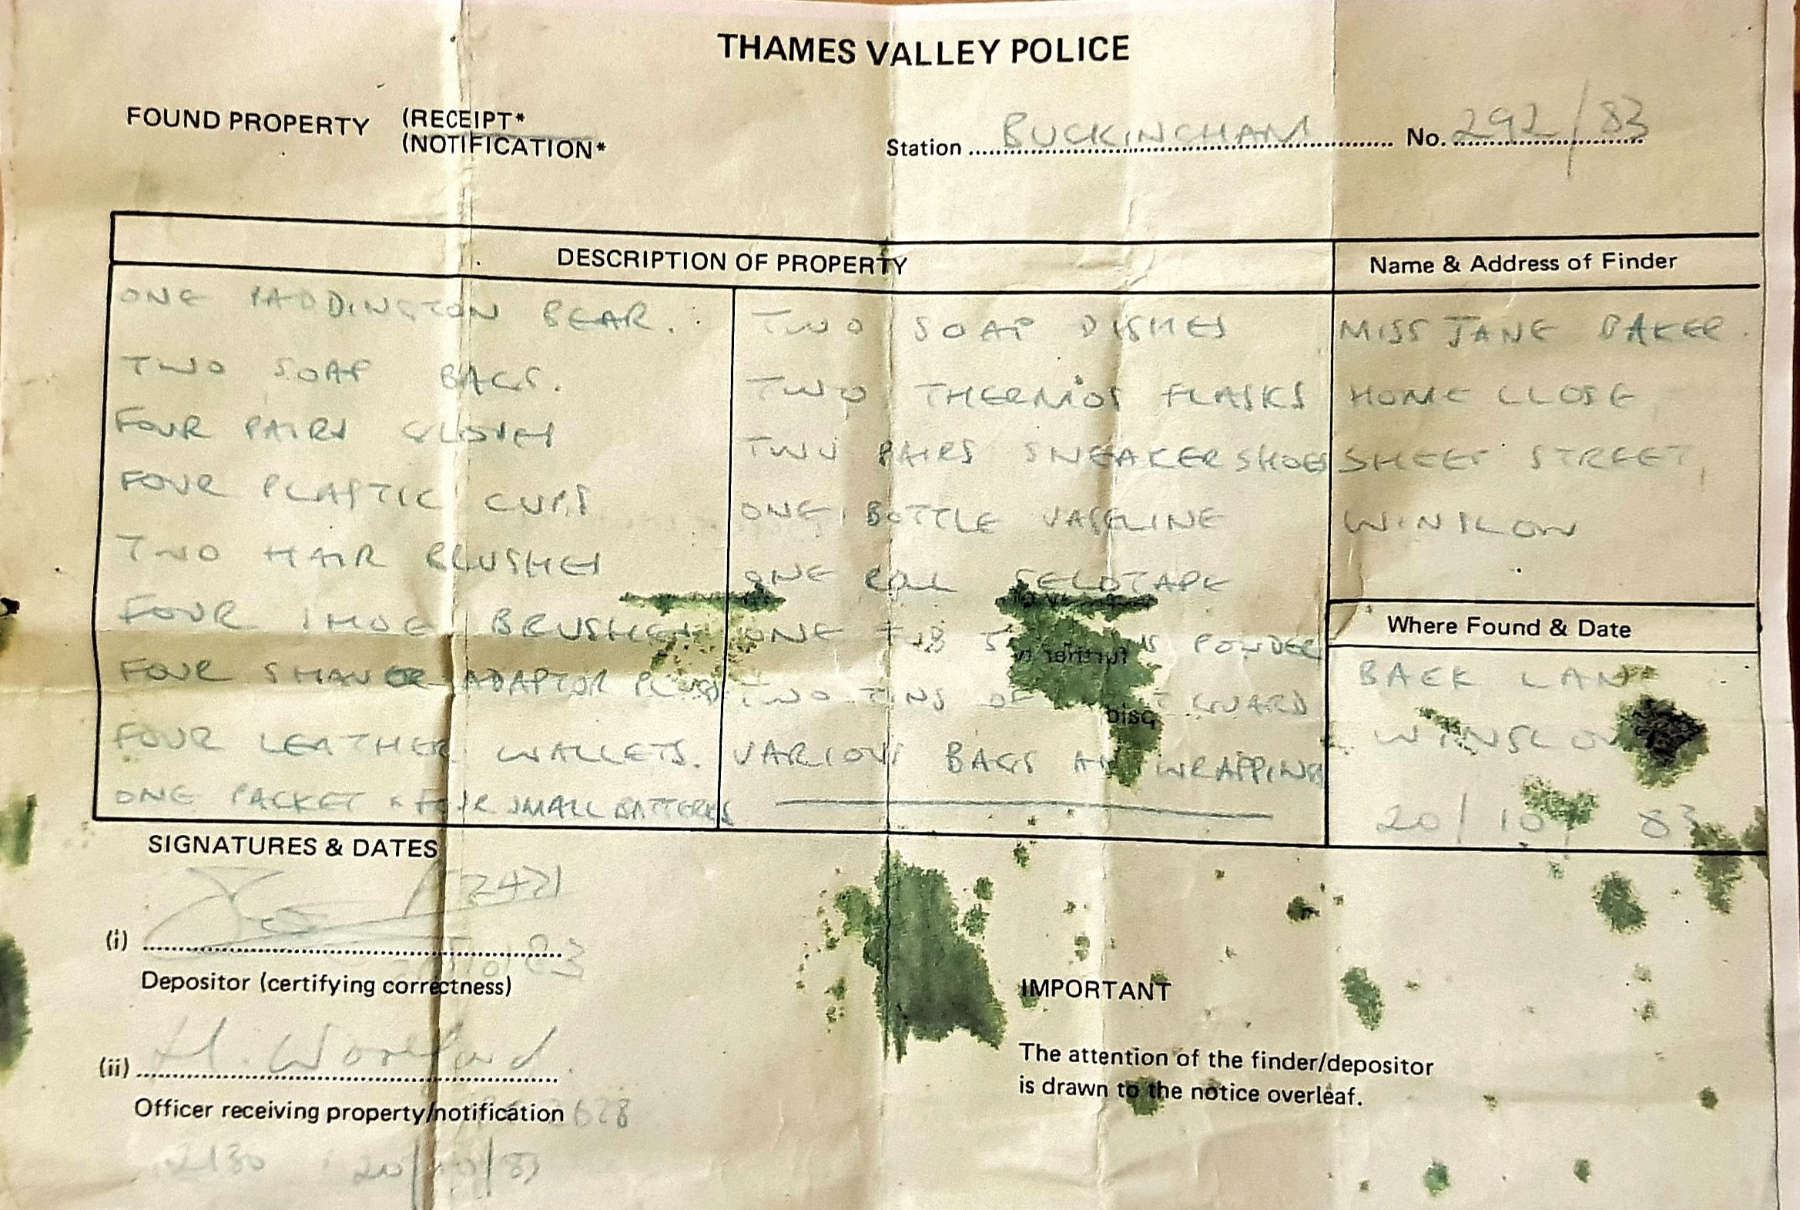 THAMES VALLEY POLICE
FOUND PROPERTY (RECEIPT*
(NOTIFICATION*
Station BUCKINGHAM No. 292/83
DESCRIPTION OF PROPERTY
ONE PADDINGTON BEAR.
TWO SOAP BAGS.
FOUR PAIRS GLOVES
FOUR PLASTIC CUPS
TWO HAIR BRUSHES
FOUR SHOE BRUSHES
FOUR SHAVER ADAPTOR PLUGS
FOUR LEATHER WALLETS.
ONE PACKET & FOUR SMALL BATTERIES
TWO SOAP DISHES
TWO THERMOS FLASKS
TWO PAIRS SNEAKER SHOES
ONE BOTTLE VASELINE
ONE ROLL SELOTAPE
ONE POWDER
TWO TINS OF GUARD
VARIOUS BAGS WRAPPING
Name & Address of Finder
MISS JANE BAKER.
HOME CLOSE
SHEEP STREET,
WINSLOW
Where Found & Date
BACK LANE
WINSLOW
20/10/83
SIGNATURES & DATES
2471
(i)
Depositor (certifying correctness)
(ii) H. Woolford
Officer receiving property/notification
2130 20/10/83
IMPORTANT
The attention of the finder/depositor
is drawn to the notice overleaf.